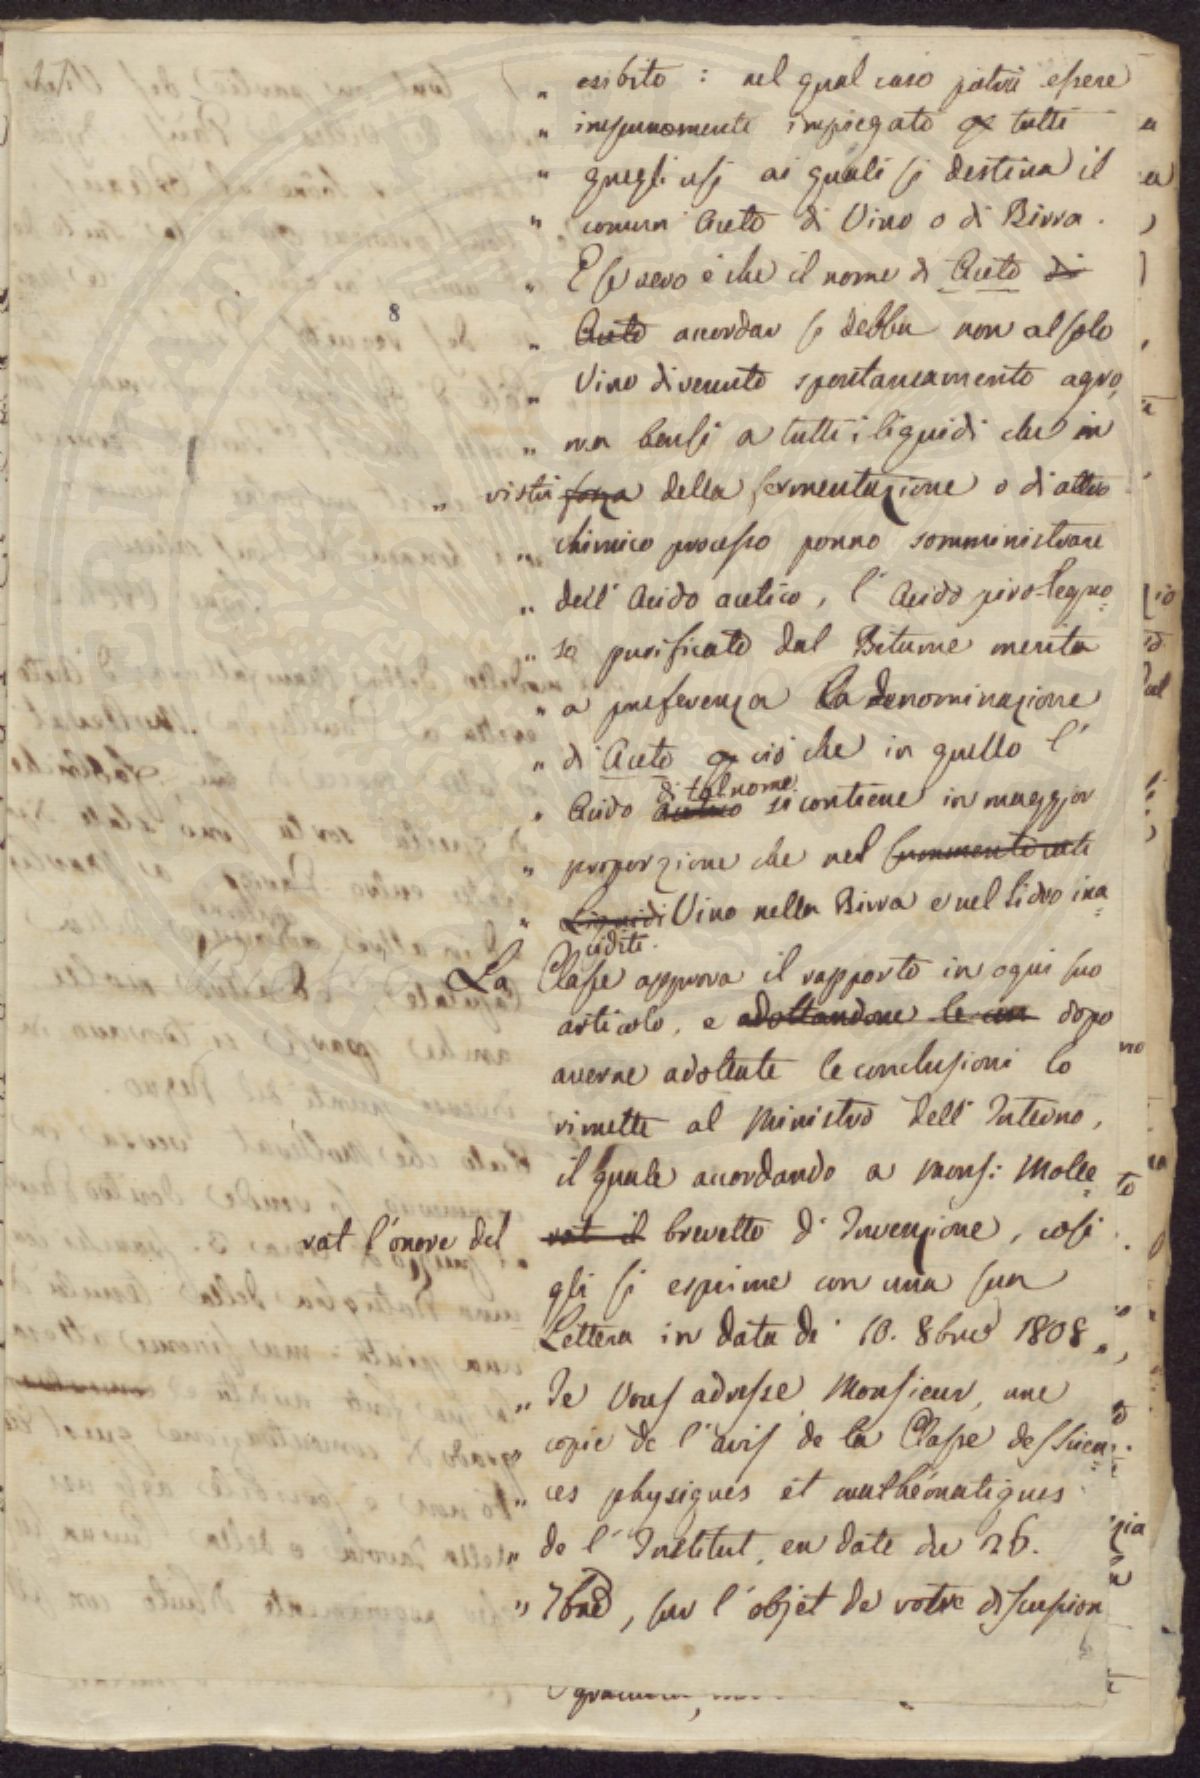 „ esibito : nel qual caso potrà essere
„ impunemente impiegato per tutti
„ quegli usi ai quali si destina il
„ comun Aceto di Vino o di Birra .
„ E se vero è che il nome di Aceto di
8
„ Aceto accordar si debba non al solo
„ Vino divenuto spontaneamente agro,
„ ma bensì a tutti i liquidi che in
„ vista forza della fermentazione o di altro
„ chimico processo ponno somministrare
„ dell' Acido acetico, l' Acido piro-legno=
„ so purificato dal Bitume merita
„ a preferenza la denominazione
„ di Aceto per ciò che in quello l'
di tal nome
„ Acido acetico si contiene in maggior
„ proporzione che nel
„ Liquidi Vino nella Birra e nel Sidro ina=
cidite.
La Classe approva il rapporto in ogni suo
articolo, e adottandone le con dopo
averne adottate le conclusioni lo
rimette al Ministro dell' Interno,
il quale accordando a Mons: Molle=
rat l'onore del rat il brevetto d' Invenzione, così
gli si esprime con una sua
Lettera in data di 10. 8bre 1808.
„ Je vous adresse, Monsieur, une
„ copie de l'avis de la Classe des Scien=
„ ces physiques et mathématiques
„ de l' Institut, en date du 26.
„ 7bre, sur l'objet de votre discussion